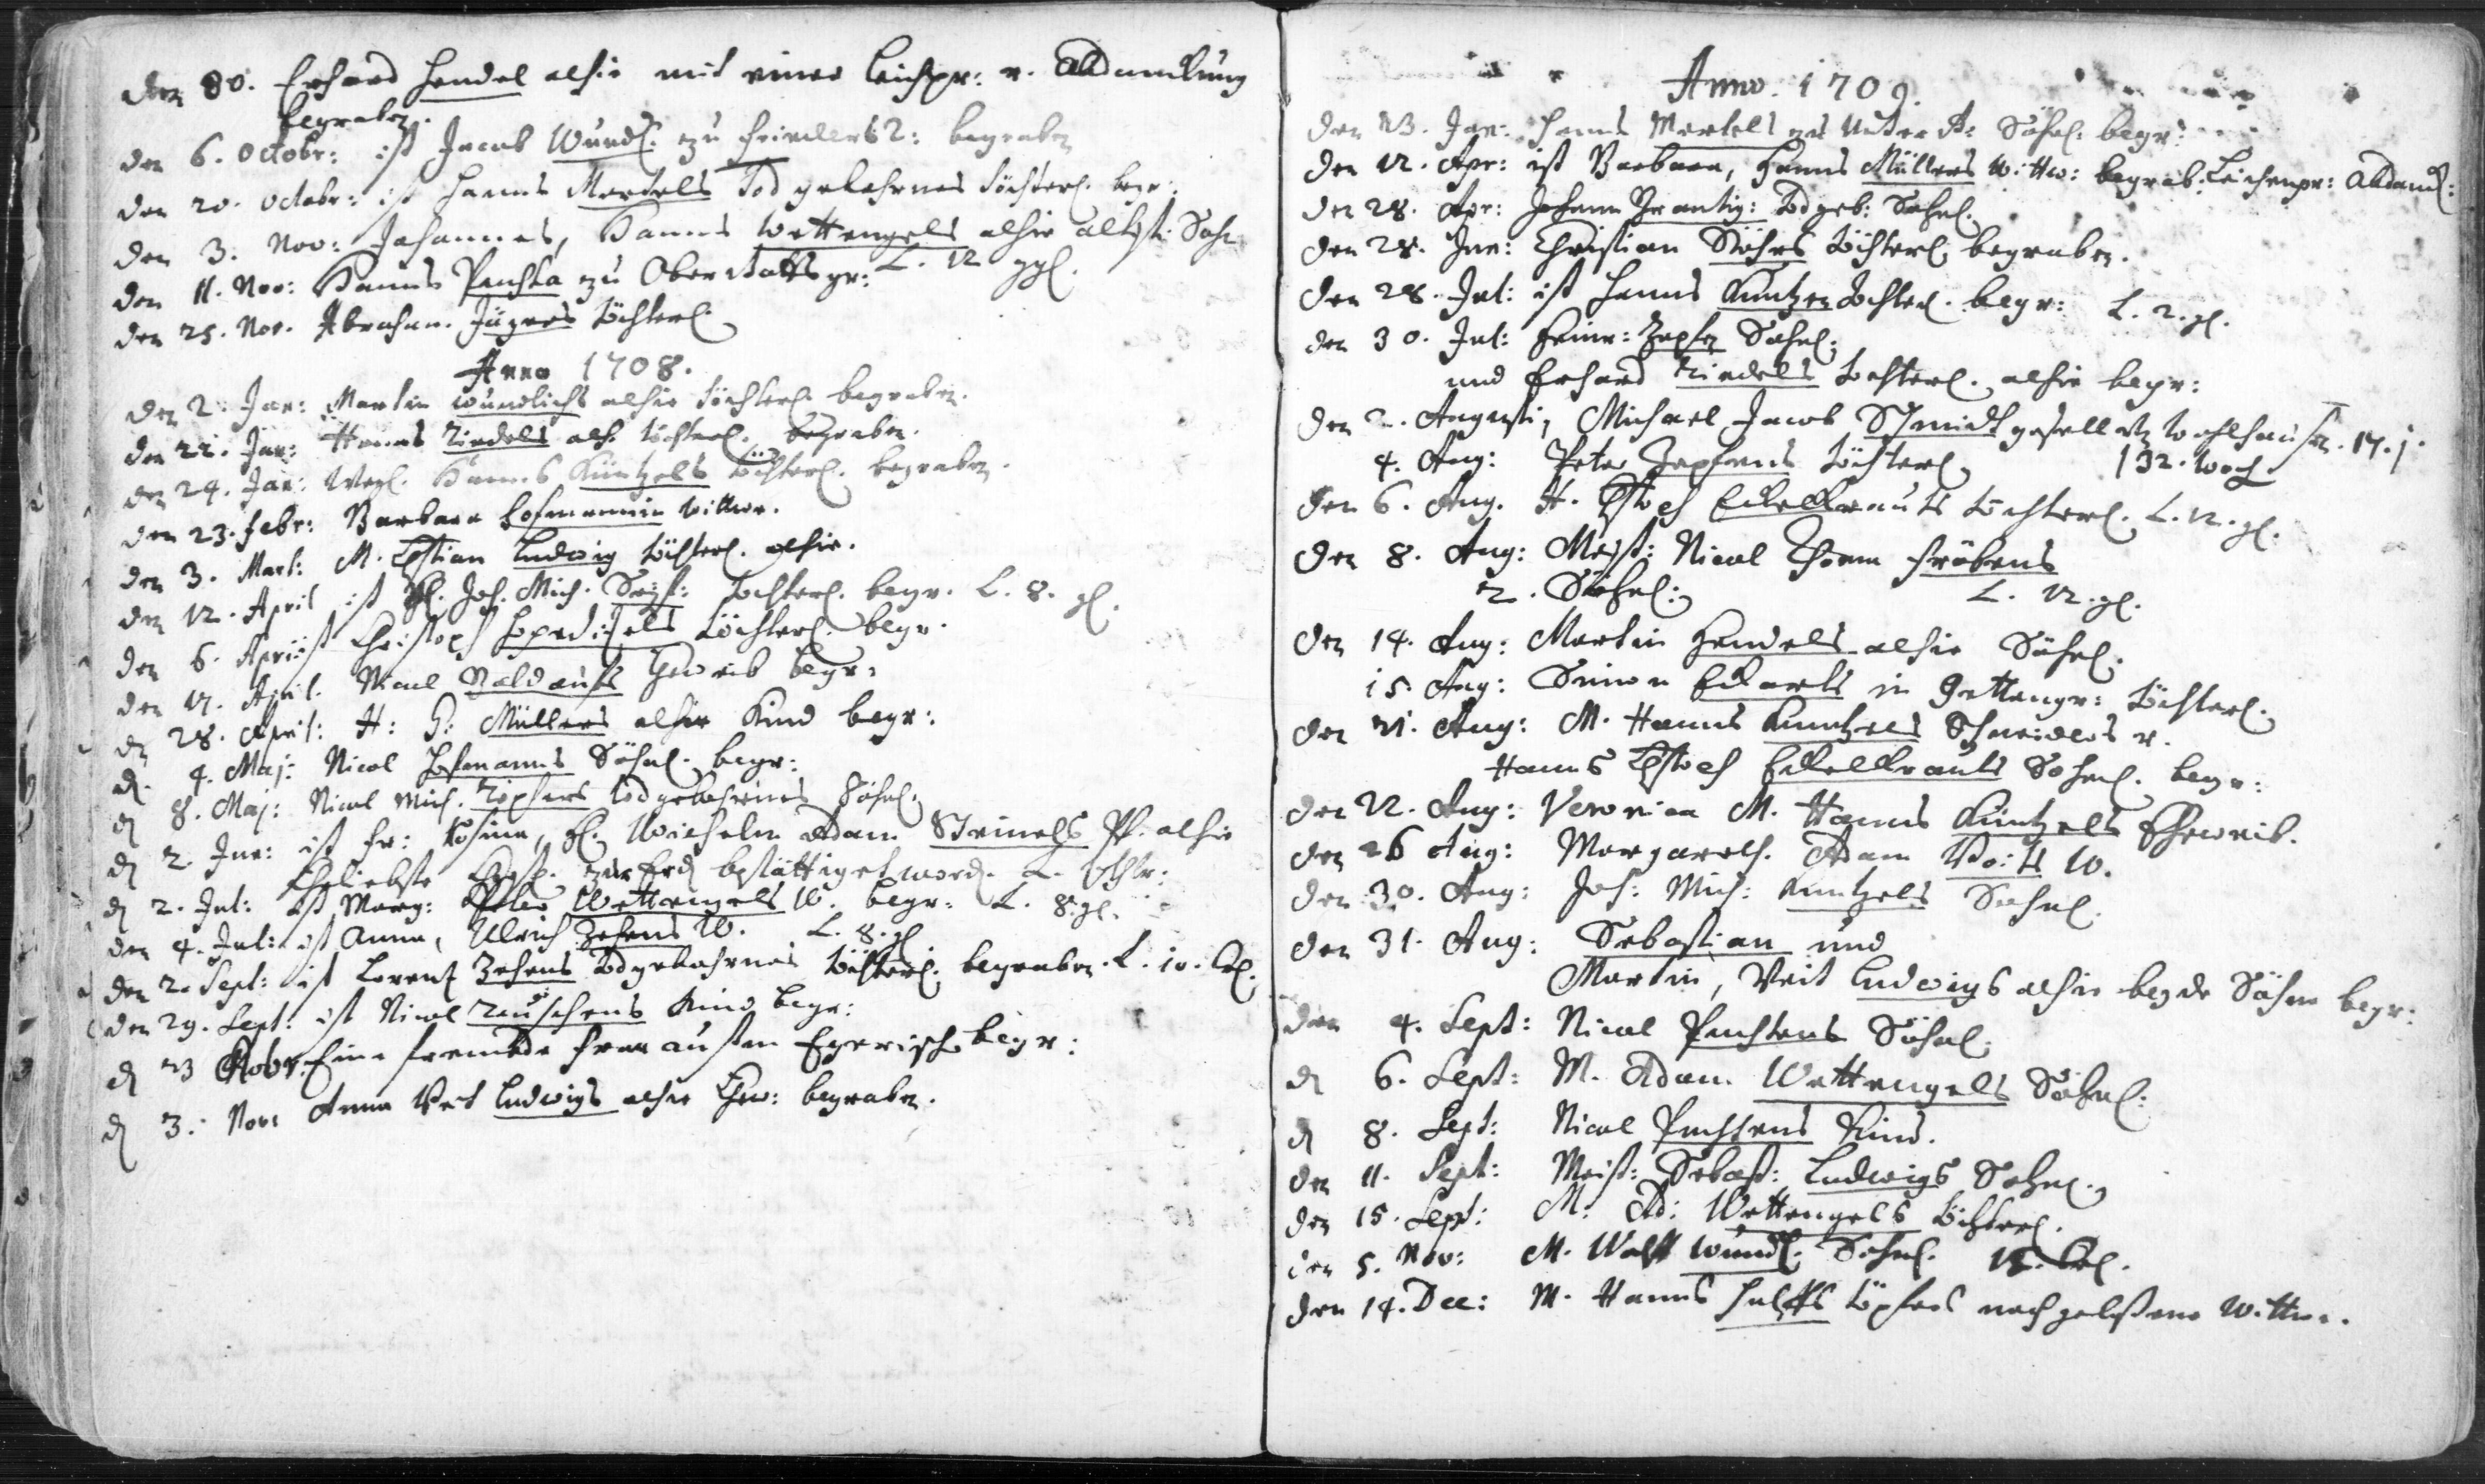 den 30. Erhard Hendel alhie mit einer Leichpr: v. Abdanckung
begraben.
den 6. Octobr: ist Jacob Wundl. zu begraben
den 20. Octobr: ist Hanns Mertels Tod gebohrnes Töchterl. begr.
den 3. Nov: Johannes, Hanns Wettengels alhie ältest. Sohn
den 11. Nov: Hanns Puchta zu Ober L. 12 ggl.
den 25. Nov. Abraham Jägers Töchterl.
Anno 1708.
den 2. Jan: Martin Wundlichs alhie Töchterl. begraben.
den 22. Jan: Hanns Riedels alh. Töchterl. begraben.
den 24. Jan: Hanns Küntzels Töchterl. begraben.
den 23. Febr: Barbara Hofmannin Wittwe.
den 3. Mart: M. Christian Ludwig Töchterl. alhie.
den 12. April ist H. Joh. Mich. Töchterl. begr. L. 8. gl.
den 6. April ist Christoph Töchterl. begr.
den 17. April. Nicol Baldaufs Eheweib begr:
den 28. April: H: G: Müllers alhie Kind begr:
d. 4. Maj: Nicol Hofmanns Söhnl. begr:
d. 8. Maj: Nicol Mich. Töpfers todgebohrnes Söhnl.
d. 2. Jun: ist Fr: Rosina, H. Wilhelm Adam Steinels Pf. alhie
Eheliebste zur Erd bestättiget word. L.
d. 2. Jul: ist Marg: Peter Wettengels W. begr: L. 8. gl.
den 4. Jul: ist Anna, Ulrich Zehens W. L. 8. gl
den 2. Sept: ist Lorentz Zehens todgebohrnes Töchterl. begraben. L. 10.
den 29. Sept: ist Nicol Kind begr:
d. 23 Octobr. Eine frembde Frau außm Egerisch begr:
d. 3. Nov: Anna Veit Ludwigs alhie Ehew: begraben.
Anno. 1709.
den 23. Jan: Hanns Mertels zu Unter Söhnl. begr:
den 12. Apr: ist Barbara, Hanns Müllers Wittw: begrab. Leichenpr: Abdanck:
den 28. Apr: Johann Tod geb: Söhnl.
den 28. Jun: Christian Stöhrs Töchterl. begraben.
den 28. Jul: ist Hanns Kuntzen Tochterl. begr: L. 2. gl.
den 30. Jul: Heinr: Zapfen Söhnl.
und Erhard Riedels Tochterl. alhie begr:
den 2. Augusti, Michael Jacob Schmidt gesell 17. j.
132. woch
4. Aug: Peter Zapfens Töchterl.
den 6. Aug. H. Christoph Eckelkrauts Töchterl. L. 12. gl.
den 8. Aug: Meist: Nicol Thom Fröbens
2. Söhnl: L. 12. gl.
den 14. Aug: Martin Hendels alhie Söhnl.
15. Aug: Simon Eckarts in Gettengr: Töchterl.
den 21. Aug: M. Hanns Kuntzels Schneiders v.
Hanns Christoph Eckelkrauts Sohnl. begr:
den 22. Aug: Veronica M. Hanns Küntzels Eheweib.
den 26 Aug: Margareth. Adam Voits W.
den 30. Aug: Joh: Mich: Kuntzels Söhnl.
den 31. Aug: Sebastian und
Martin, Veit Ludwigs alhie beyde Söhne begr:
den 4. Sept: Nicol Puchtens Söhnl.
d. 6. Sept: M. Adam Wettengels Söhnl:
d. 8. Sept: Nicol Puchtens Kind.
den 11. Sept: Meist: Sebast: Ludwigs Sohnl.
den 15. Sept: M: Ad: Wettengels Töchterl.
den 5. Nov: M. Wolff Wundl. Sohnl.
den 14. Dec: M. Hanns Töpfers nachgelaßene Wittw.